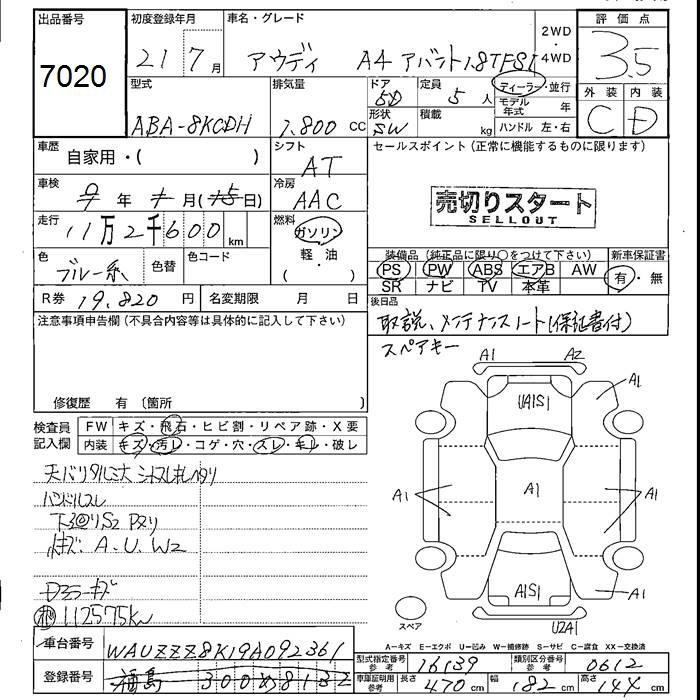 出品番号 初度登録年月 車名・グレード 2WD 評価点
7020 21 7月 アウディ A4 アバント1.8TFSI 4WD 3.5
型式 排気量 ドア 定員 ディーラー・並行 外装 内装
ABA-8KCDH 1,800 cc 5D 5人 モデル年式 年 C D
形状 積載 ハンドル 左・右
SW kg
車歴 自家用・( ) シフト セールスポイント(正常に機能するものに限ります)
AT
車検 年 月(15日) 冷房 売切りスタート
AAC SELLOUT
走行 11万2千600km 燃料 ガソリン・軽・油
装備品(純正品に限り○をつけて下さい) 新車保証書
色 ブルー系 色替 色コード PS PW ABS エアB AW 有・無
SR ナビ TV 本革
R券 19,820円 名変期限 月 日 後日品
取説、メンテナンスノート(保証書付)
スペアキー
注意事項申告欄(不具合内容等は具体的に記入して下さい)
修復歴 有 (箇所 )
検査員記入欄 FW キズ・飛石・ヒビ割・リペア跡・X要
内装 キズ・汚レ・コゲ・穴・スレ・キレ・破レ
天バリタルミ大
ハンドルスレ
キズ.A.U.W2
Dミラーキズ
112575km
A1 A2
A1
UA1S1
A1 A1 A1
A1S1
A1
スペア U2A1
A-キズ E-エクボ U-凹み W-補修跡 S-サビ C-腐食 XX-交換済
車台番号 WAUZZZ8K19A092361
型式指定番号 参考 16139 類別区分番号 参考 0612
登録番号 福島 300 め 8132
車庫証明用 参考 長さ 470cm 幅 182cm 高さ 144cm